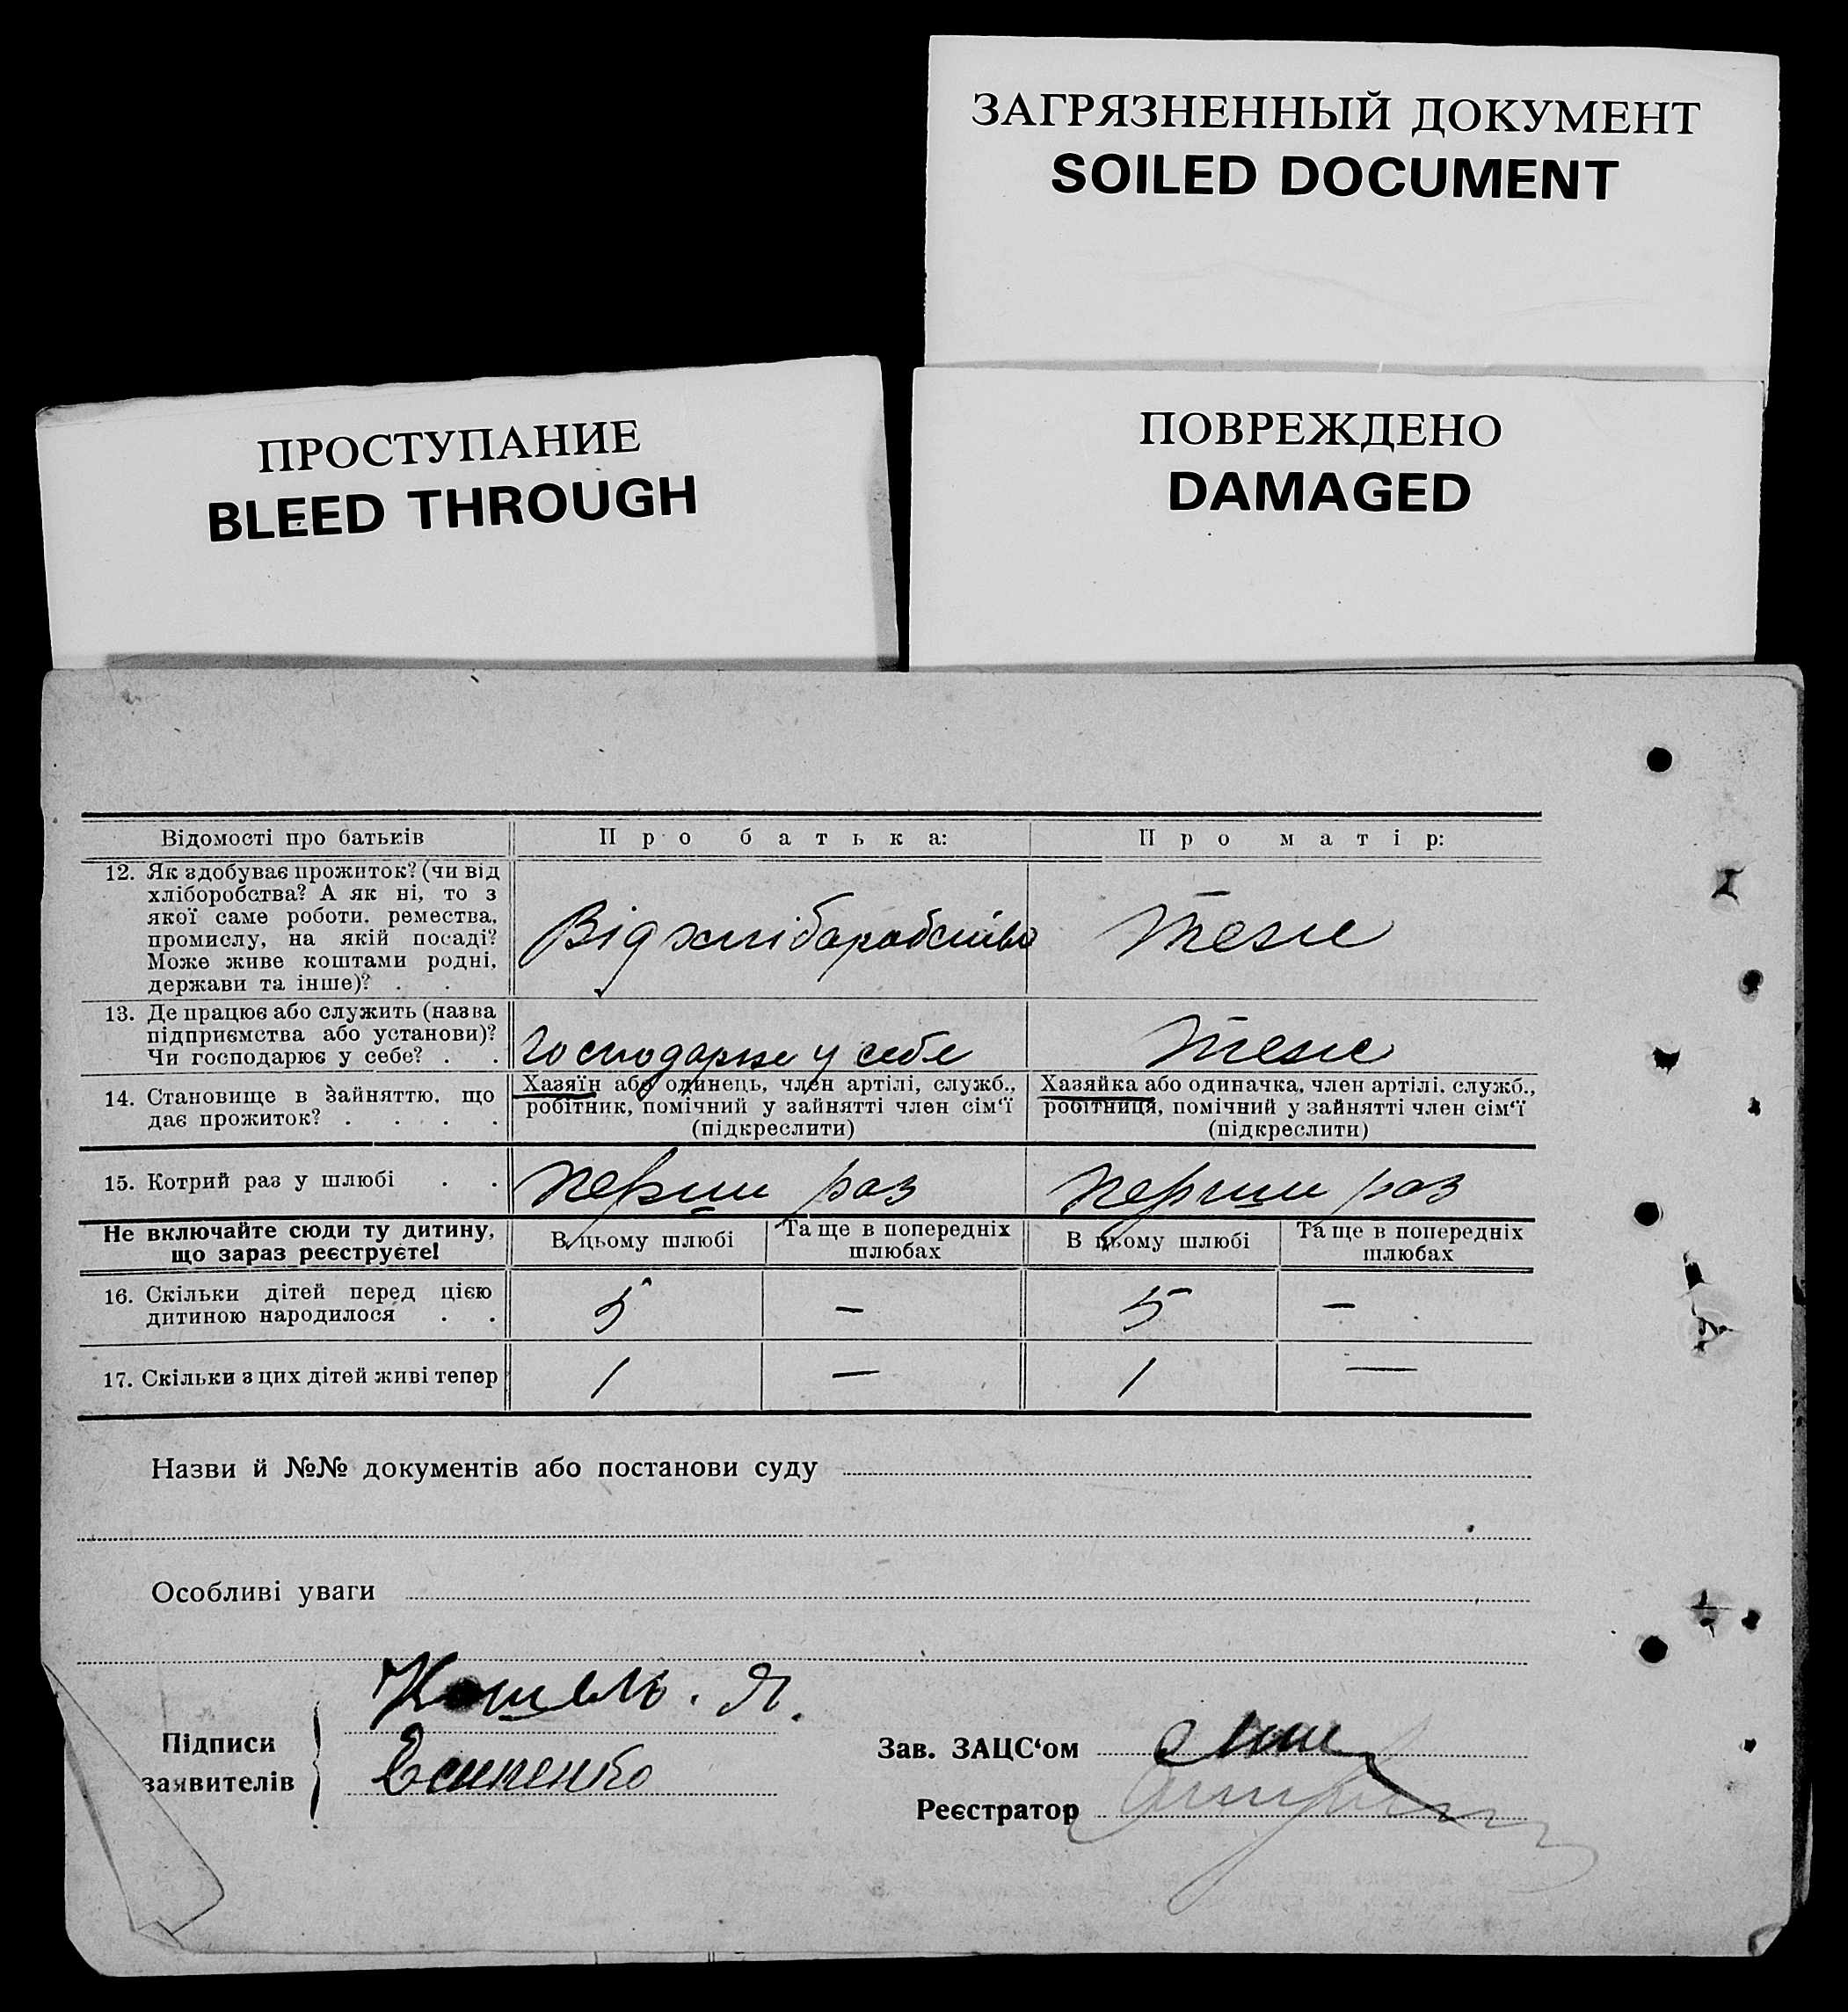 ЗАГРЯЗНЕННЫЙ ДОКУМЕНТ
SOILED DOCUMENT
ПРОСТУПАНИЕ
BLEED THROUGH
ПОВРЕЖДЕНО
DAMAGED
Відомості про батьків
Про батька:
Про матір:
12. Як здобуває прожиток? (чи від
хліборобства? А як ні, то з
якої саме роботи, ремества,
промислу, на якій посаді?
Може живе коштами родні,
держави та інше)? . .
Від хліборобства
теж
13. Де працює або служить (назва
підприємства або установи)?
Чи господарює у себе? . .
Господарює у себе
теж
14. Становище в зайняттю, що
дає прожиток? . . . .
Хазяїн або одинець, член артілі, служб.,
робітник, помічний у зайнятті член сім‘ї
(підкреслити)
Хазяйка або одиначка, член артілі, служб.,
робітниця, помічний у зайнятті член сім‘ї
(підкреслити)
15. Котрий раз у шлюбі . .
перши раз
перши раз
Не включайте сюди ту дитину,
що зараз реєструєте!
В цьому шлюбі
Та ще в попередніх
шлюбах
В цьому шлюбі
Та ще в попередніх
шлюбах
16. Скільки дітей перед цією
дитиною народилося . .
5
—
5
—
17. Скільки з цих дітей живі тепер
1
—
1
—
Назви й №№ документів або постанови суду
Особливі уваги
Підписи
заявителів
Кошель. Я.
Есипенко
Зав. ЗАЦС‘ом
Реєстратор